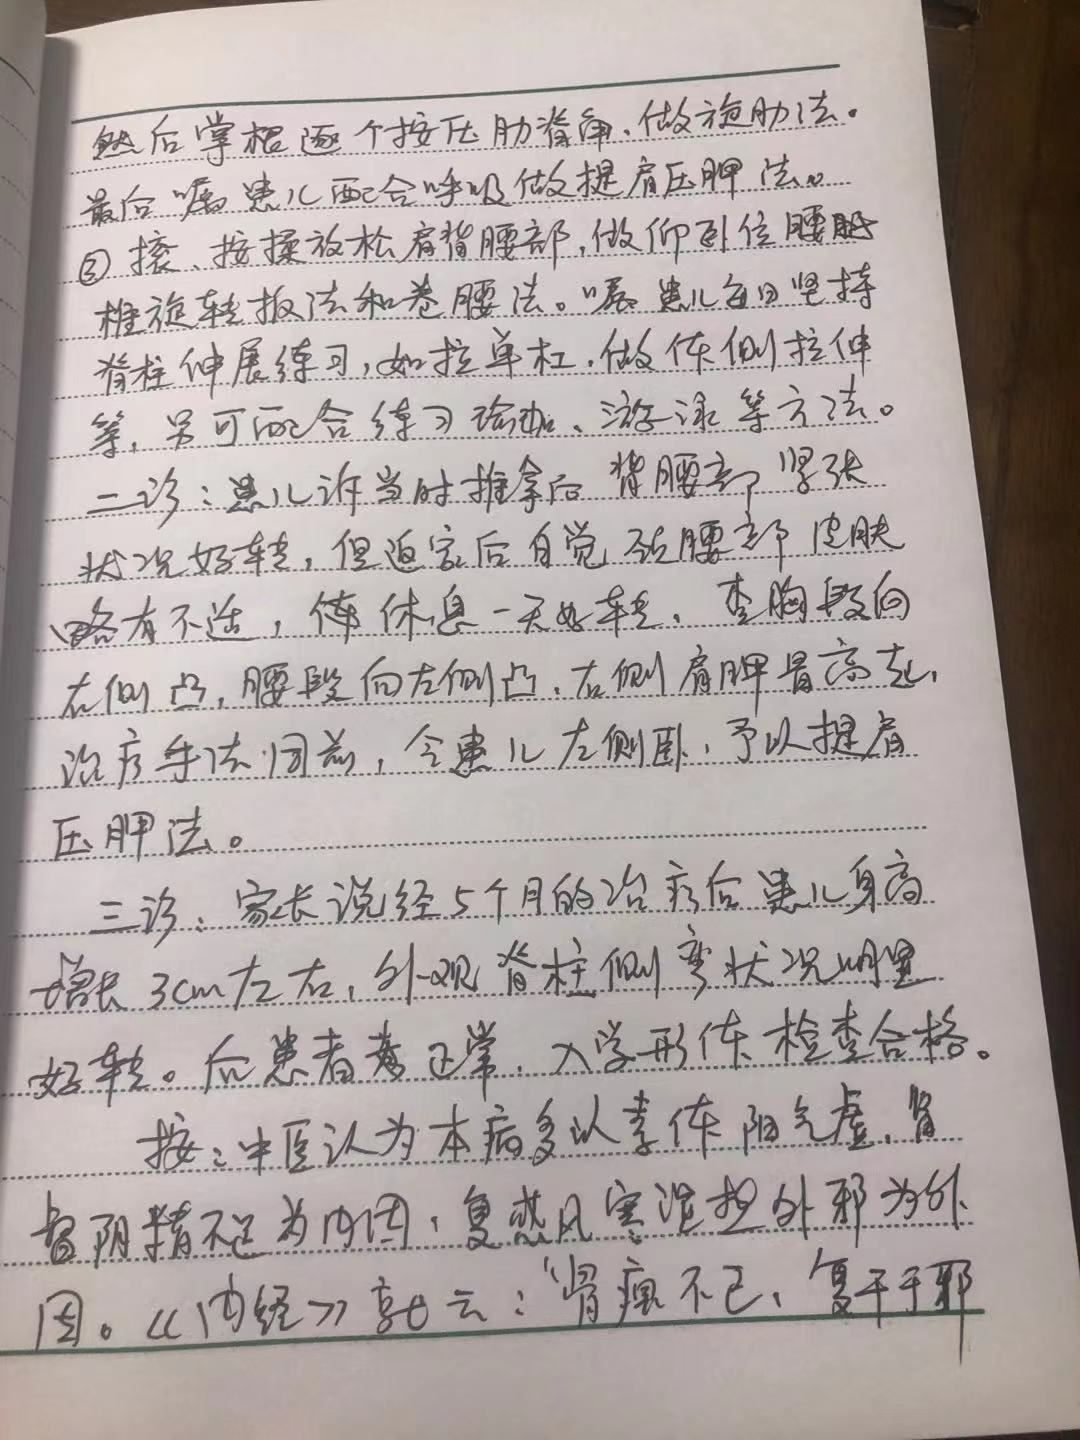 然后掌根逐个按压肋脊角、做旋肋法。
最后嘱患儿配合呼吸做提肩压胛法。
②㨰、按揉放松肩背腰部,做仰卧位腰骶
椎旋转扳法和卷腰法。嘱患儿每日坚持
脊柱伸展练习,如拉单杠、做体侧拉伸
等,另可配合练习瑜伽、游泳等方法。
二诊:患儿诉当时推拿后背腰部紧张
状况好转,但返家后自觉 腰部皮肤
略有不适,俟休息一天好转。查胸段向
右侧凸,腰段向左侧凸、右侧肩胛骨高起,
治疗手法同前,令患儿左侧卧,予以提肩
压胛法。
三诊:家长说经5个月的治疗后患儿身高
增长3cm左右,外观脊柱侧弯状况明显
好转。后患者 正常,入学形体检查合格。
按:中医认为本病多以素体阳气虚、肾
督阴精不足为内因,复感风寒湿 外邪为外
因。《内经》就云:“骨痹不已、复干于邪